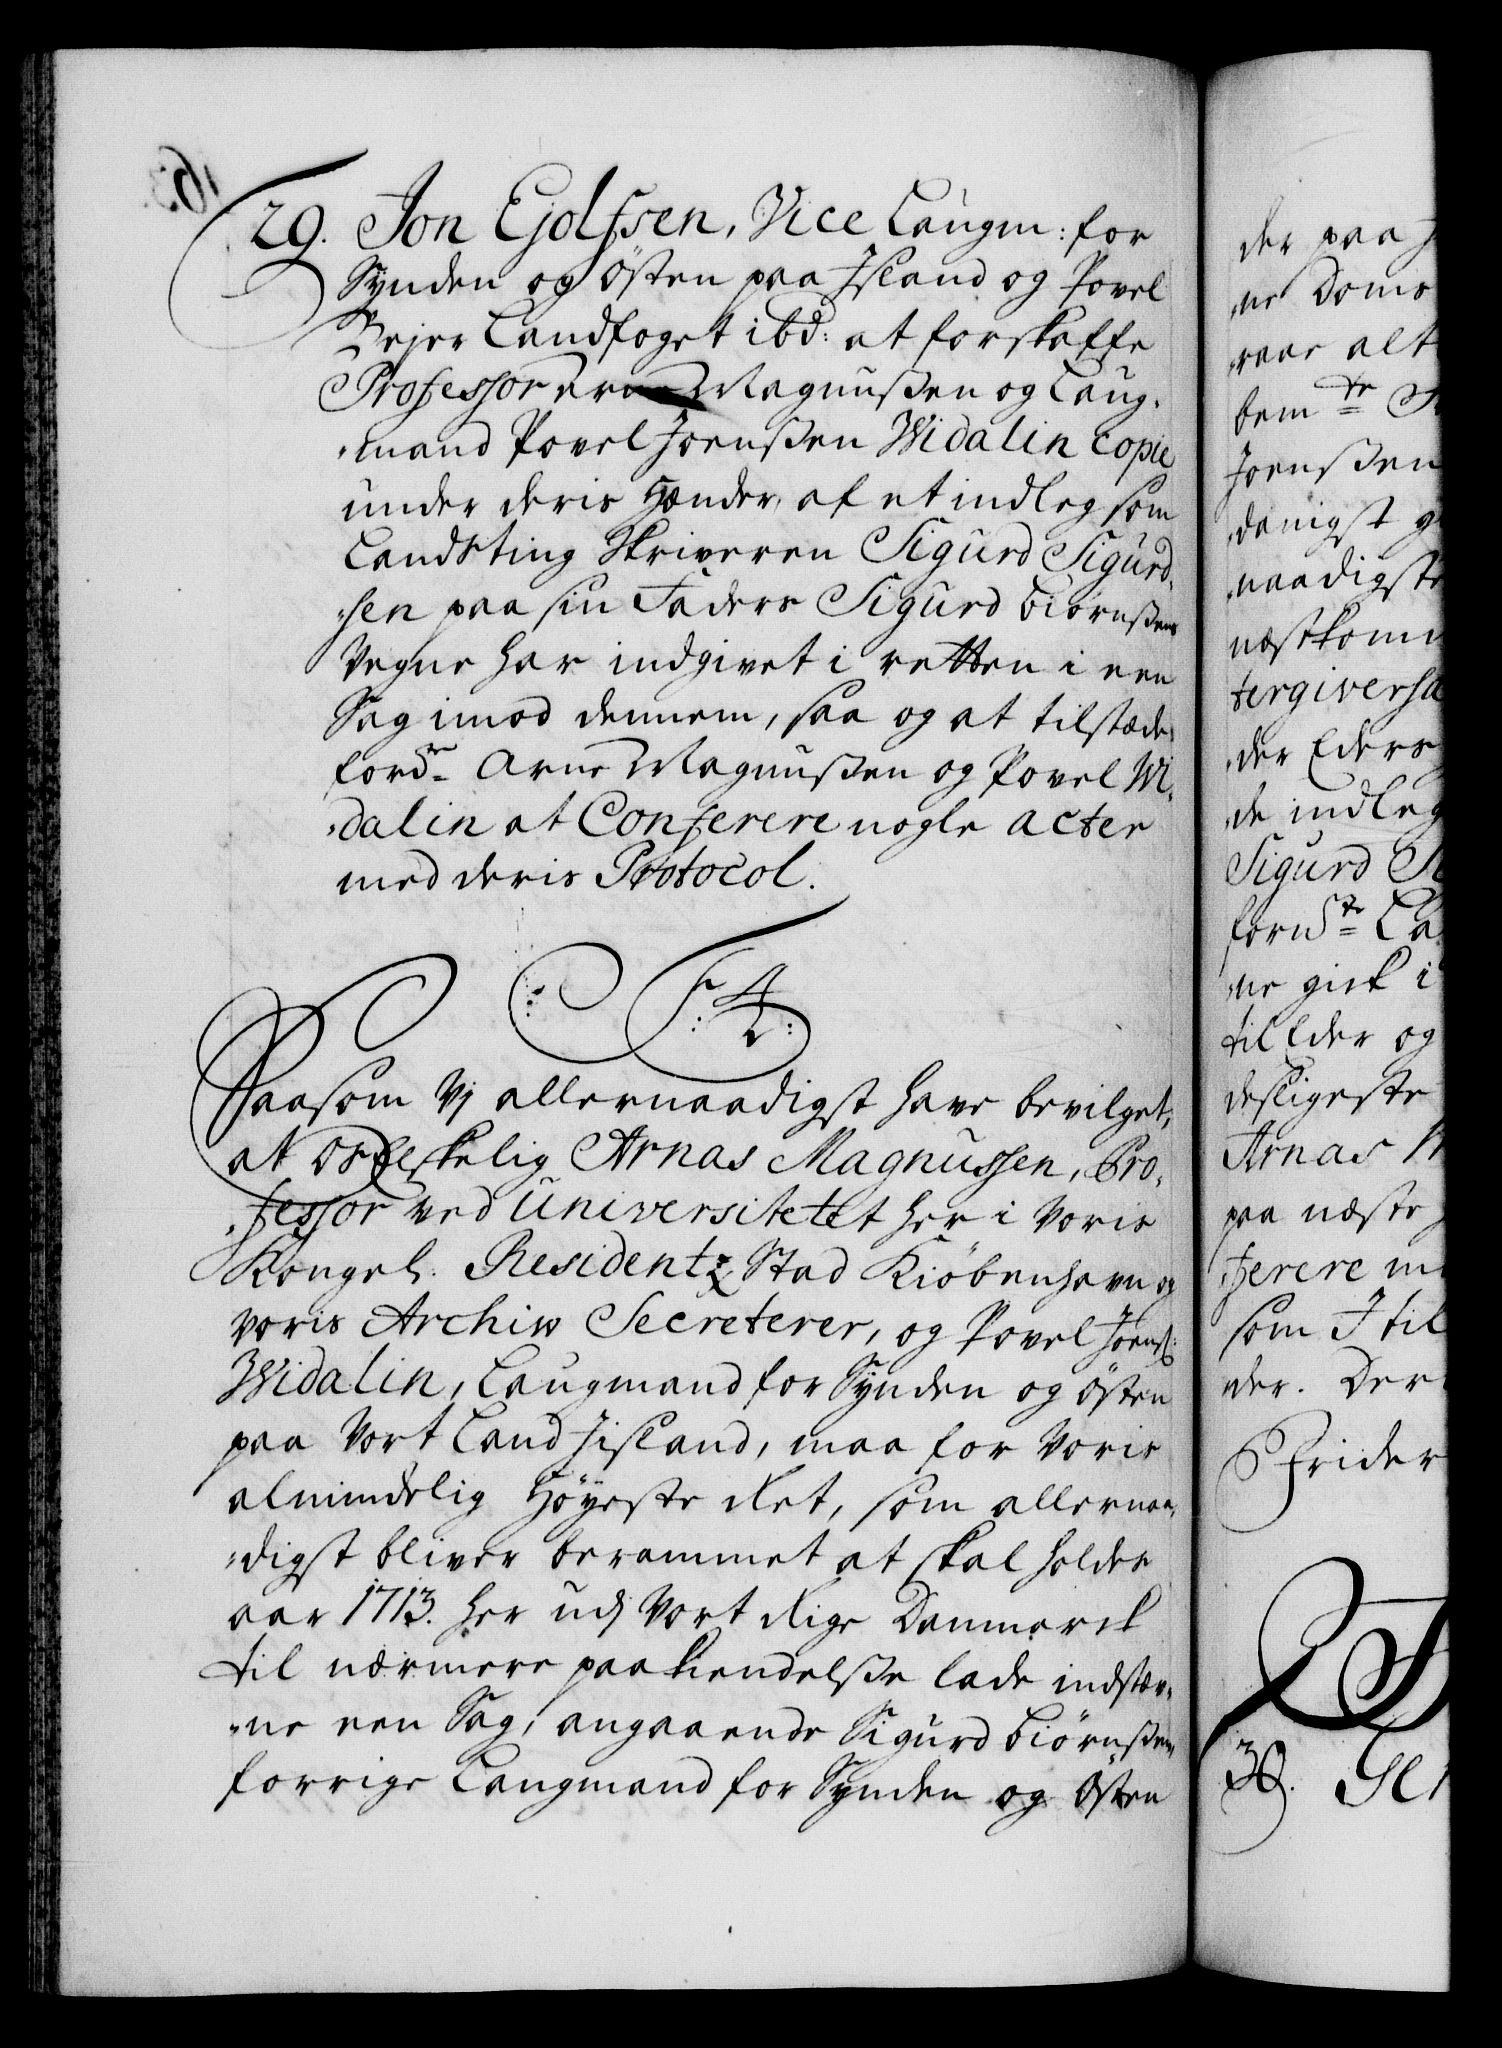 29. Jon Ejolfsen, Vice Laugm: for
Synden og Østen paa Island og Povel
Bejer Landfoget ibd: at forskaffe
Professor Arne Magnussen og Laug-
-mand Povel Joenssen Widalin Copie
under deris Hænder, af et indleg som
Landsting Skriveren Sigurd Sigurd-
-sen paa sin Faders Sigurd Biørnssens
Vegne har indgivet i retten i een
Sag imod dennem, saa og at tilstæde
fordne Arne Magnussen og Povel Wi-
-dalin at Conferere nogle acter
med deris Protocol.
F: 4:
Saasom Vj allernaadigst have bevilget,
at os Elskelig Arnas Magnussen, Pro-
-fessor ved Universitetet her i Voris
Kongel: Residentz Stad Kiøbenhavn og
voris Archiw Secreterer, og Povel Joens:
Widalin, Laugmand for Synden og Østen
paa Vort Land Jisland, maa for Voris
almindelig Høyeste Ret, som allernaa-
-digst bliver berammet at skal holdes
aar 1713. her udj Vort Rige Danmarck
til nærmere paakiendelsse lade indstæv-
-ne een Sag, angaaende Sigurd Biørnssen,
forrige Laugmand for Synden og Østen
der paa J
-ne Doms
-raar alt
bemte
Joenssen
-danigst g
-naadigste
næstkom
tergiversa
-der Eders
-de indleg
Sigurd Si
fornte La
-ne gick i
til Eder og
desligeste
Arnas M
paa næste
-ferere m
som I til
-der. Der
Frider
30. Ge